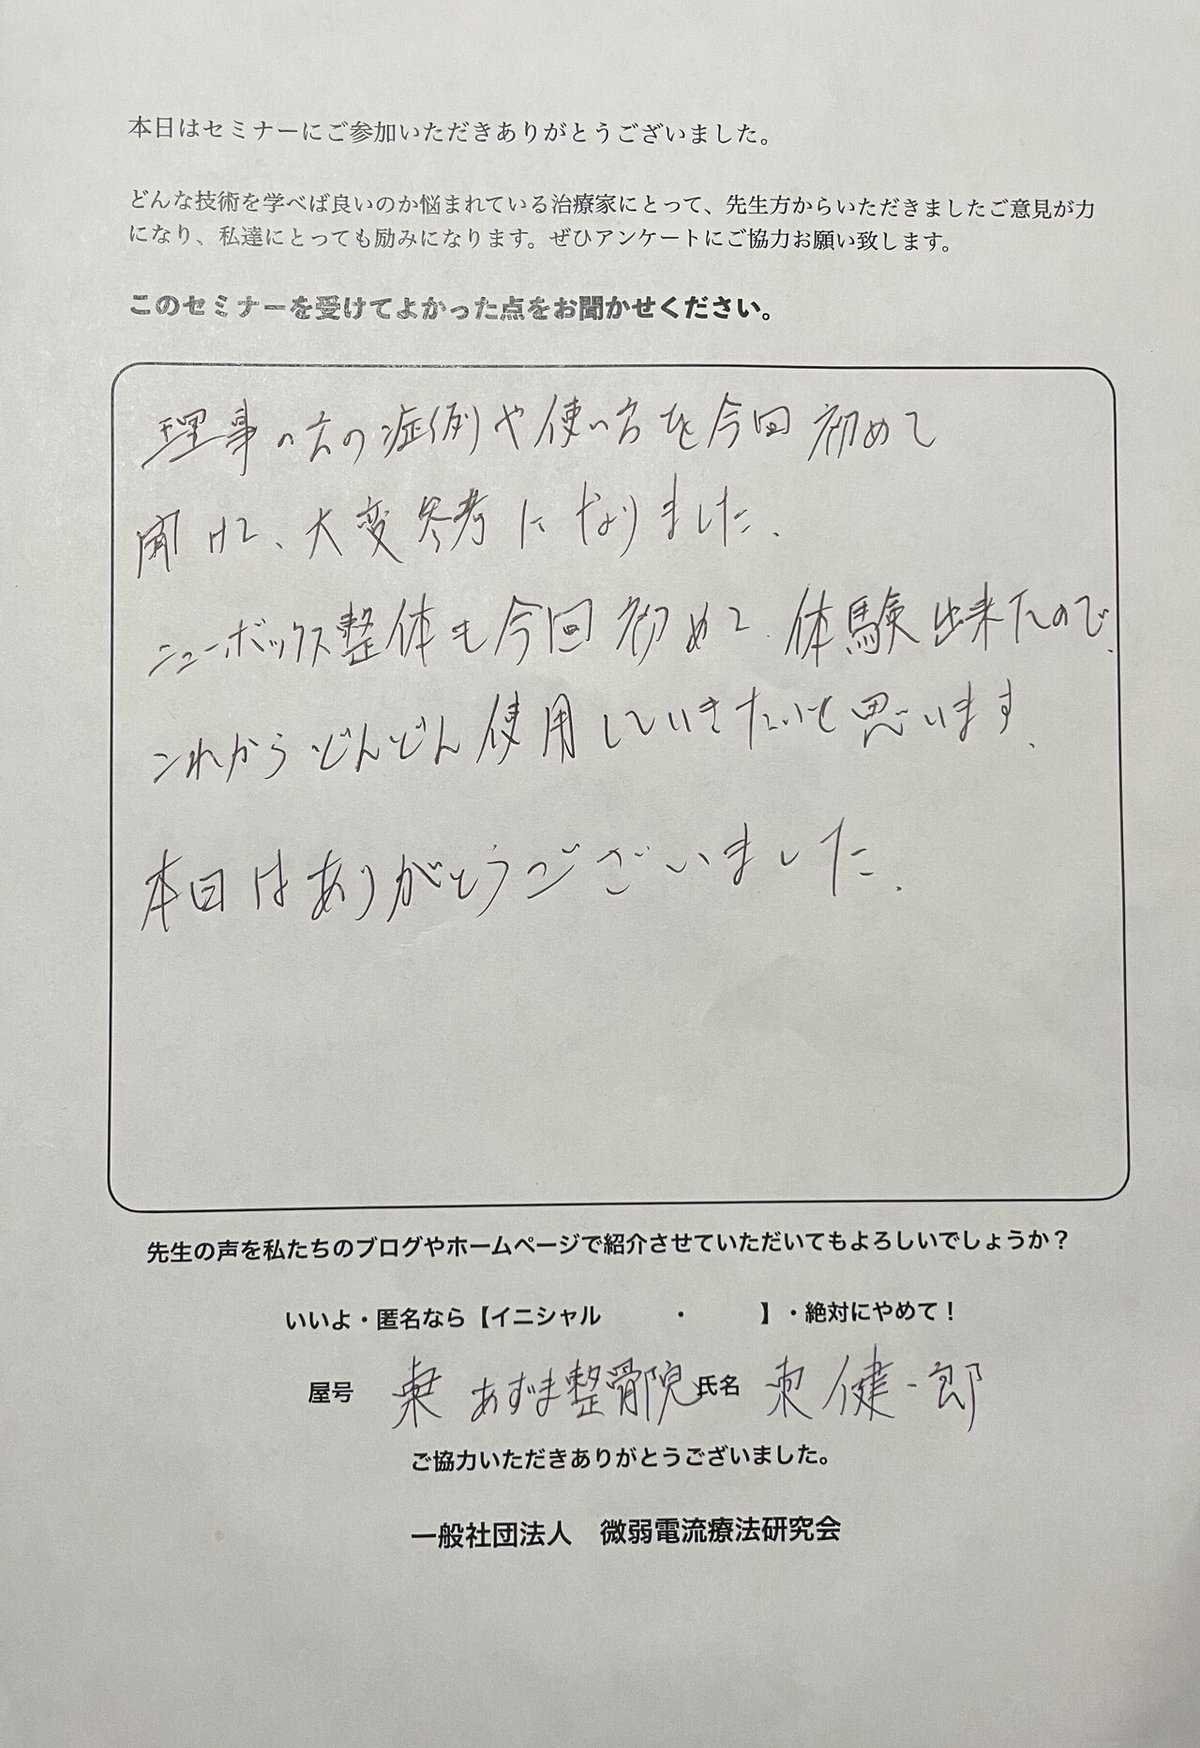 本日はセミナーにご参加いただきありがとうございました。
どんな技術を学べば良いのか悩まれている治療家にとって、先生方からいただきましたご意見が力
になり、私達にとっても励みになります。ぜひアンケートにご協力お願い致します。
このセミナーを受けてよかった点をお聞かせください。
理事の方の症例や使い方を今回初めて
聞けて、大変参考になりました.
ニューボックス整体も今回初めて.体験出来たので、
これからどんどん使用していきたいと思います.
本日はありがとうございました.
先生の声を私たちのブログやホームページで紹介させていただいてもよろしいでしょうか？
いいよ・匿名なら【イニシャル　　　・　　　】・絶対にやめて！
屋号　あずま整骨院 氏名　東 健一郎
ご協力いただきありがとうございました。
一般社団法人　微弱電流療法研究会